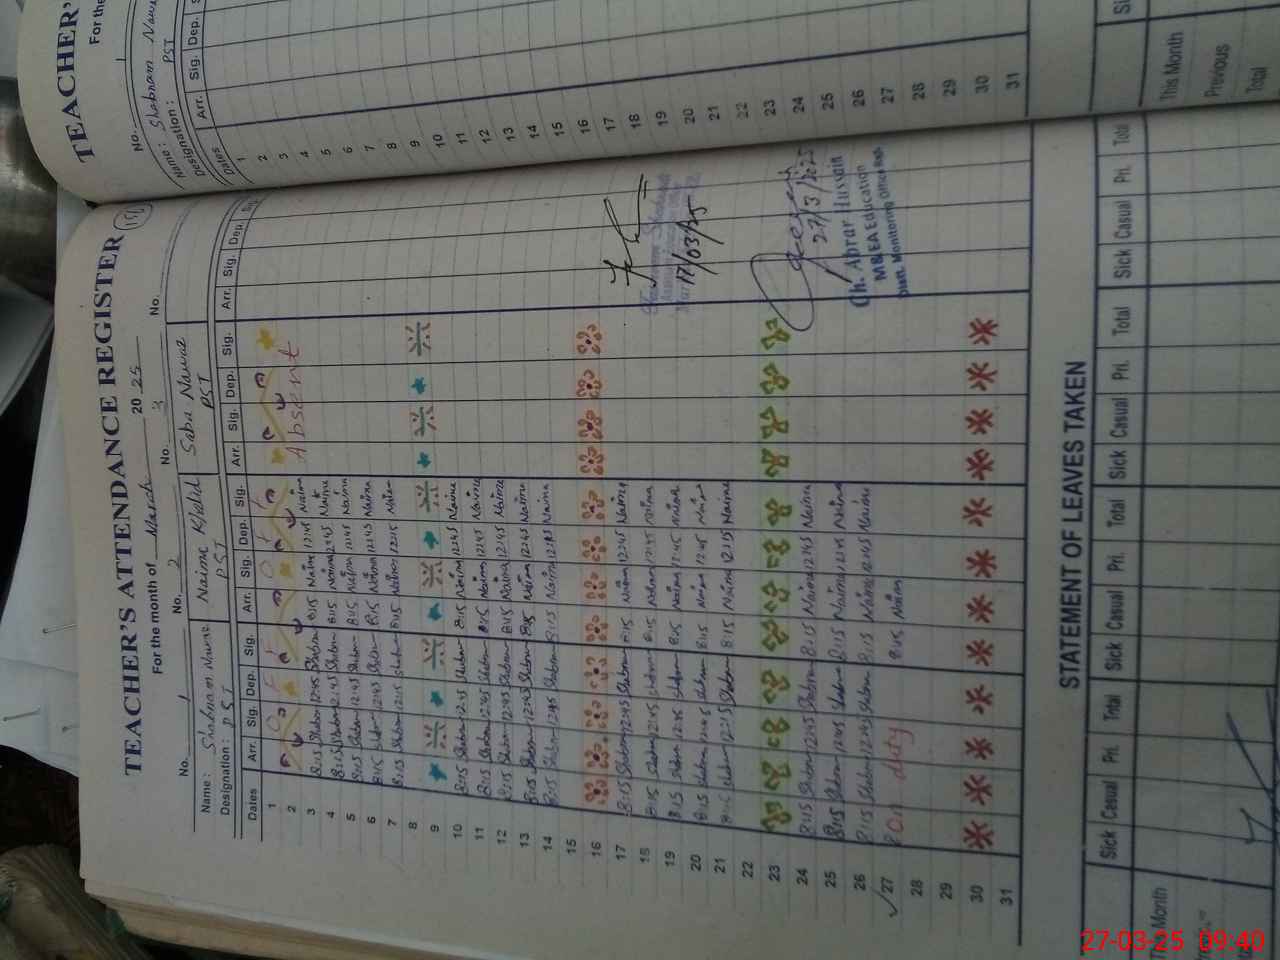 TEACHER'S ATTENDANCE REGISTER
For the month of March 3 2025
No. 1 No. 2 No. No.
Name: Shabnam Nawaz Naima Khalid Saba Nawaz
Designation: PST PST PST
Dates Arr. Sig. Dep. Sig. Arr. Sig. Dep. Sig. Arr. Sig. Dep. Sig. Arr. Sig. Dep. Sig.
1
2
3 8:15 Shabnam 12:45 Shabnam 8:15 Naima 12:45 Naima Absent
4 8:15 Shabnam 12:45 Shabnam 8:15 Naima 12:45 Naima
5 8:15 Shabnam 12:45 Shabnam 8:15 Naima 12:45 Naima
6 8:15 Shabnam 12:45 Shabnam 8:15 Naima 12:45 Naima
7 8:15 Shabnam 12:15 Shabnam 8:15 Naima 12:15 Naima
8
9
10 8:15 Shabnam 12:45 Shabnam 8:15 Naima 12:45 Naima
11 8:15 Shabnam 12:45 Shabnam 8:15 Naima 12:45 Naima
12 8:15 Shabnam 12:45 Shabnam 8:15 Naima 12:45 Naima
13 8:15 Shabnam 12:45 Shabnam 8:15 Naima 12:45 Naima
14 8:15 Shabnam Shabnam 8:15 Naima Naima
15
16
17 8:15 Shabnam 12:45 Shabnam 8:15 Naima 12:45 Naima
18 8:15 Shabnam 12:45 Shabnam 8:15 Naima 12:45 Naima
19 8:15 Shabnam 12:45 Shabnam 8:15 Naima 12:45 Naima
20 8:15 Shabnam 12:45 Shabnam 8:15 Naima 12:45 Naima
21 8:15 Shabnam 12:15 Shabnam 8:15 Naima 12:15 Naima
22
23
24 8:15 Shabnam 12:45 Shabnam 8:15 Naima 12:45 Naima
25 8:15 Shabnam 12:45 Shabnam 8:15 Naima 12:45 Naima
26 8:15 Shabnam 12:45 Shabnam 8:15 Naima 12:45 Naima
27 On duty 8:15 Naima
28
29
30
31
17/03/25
27/3/2025
Ch. Abrar Hussain
M&EA Education
Distt. Monitoring Office
STATEMENT OF LEAVES TAKEN
Sick Casual Pri. Total Sick Casual Pri. Total Sick Casual Pri. Total Sick Casual Pri. Total
Month
TEACHER'
For the
No. 1
Name: Shabnam
Designation: PST
Dates Arr. Sig. Dep.
1
2
3
4
5
6
7
8
9
10
11
12
13
14
15
16
17
18
19
20
21
22
23
24
25
26
27
28
29
30
31
This Month
Previous
Total
27-03-25 09:40